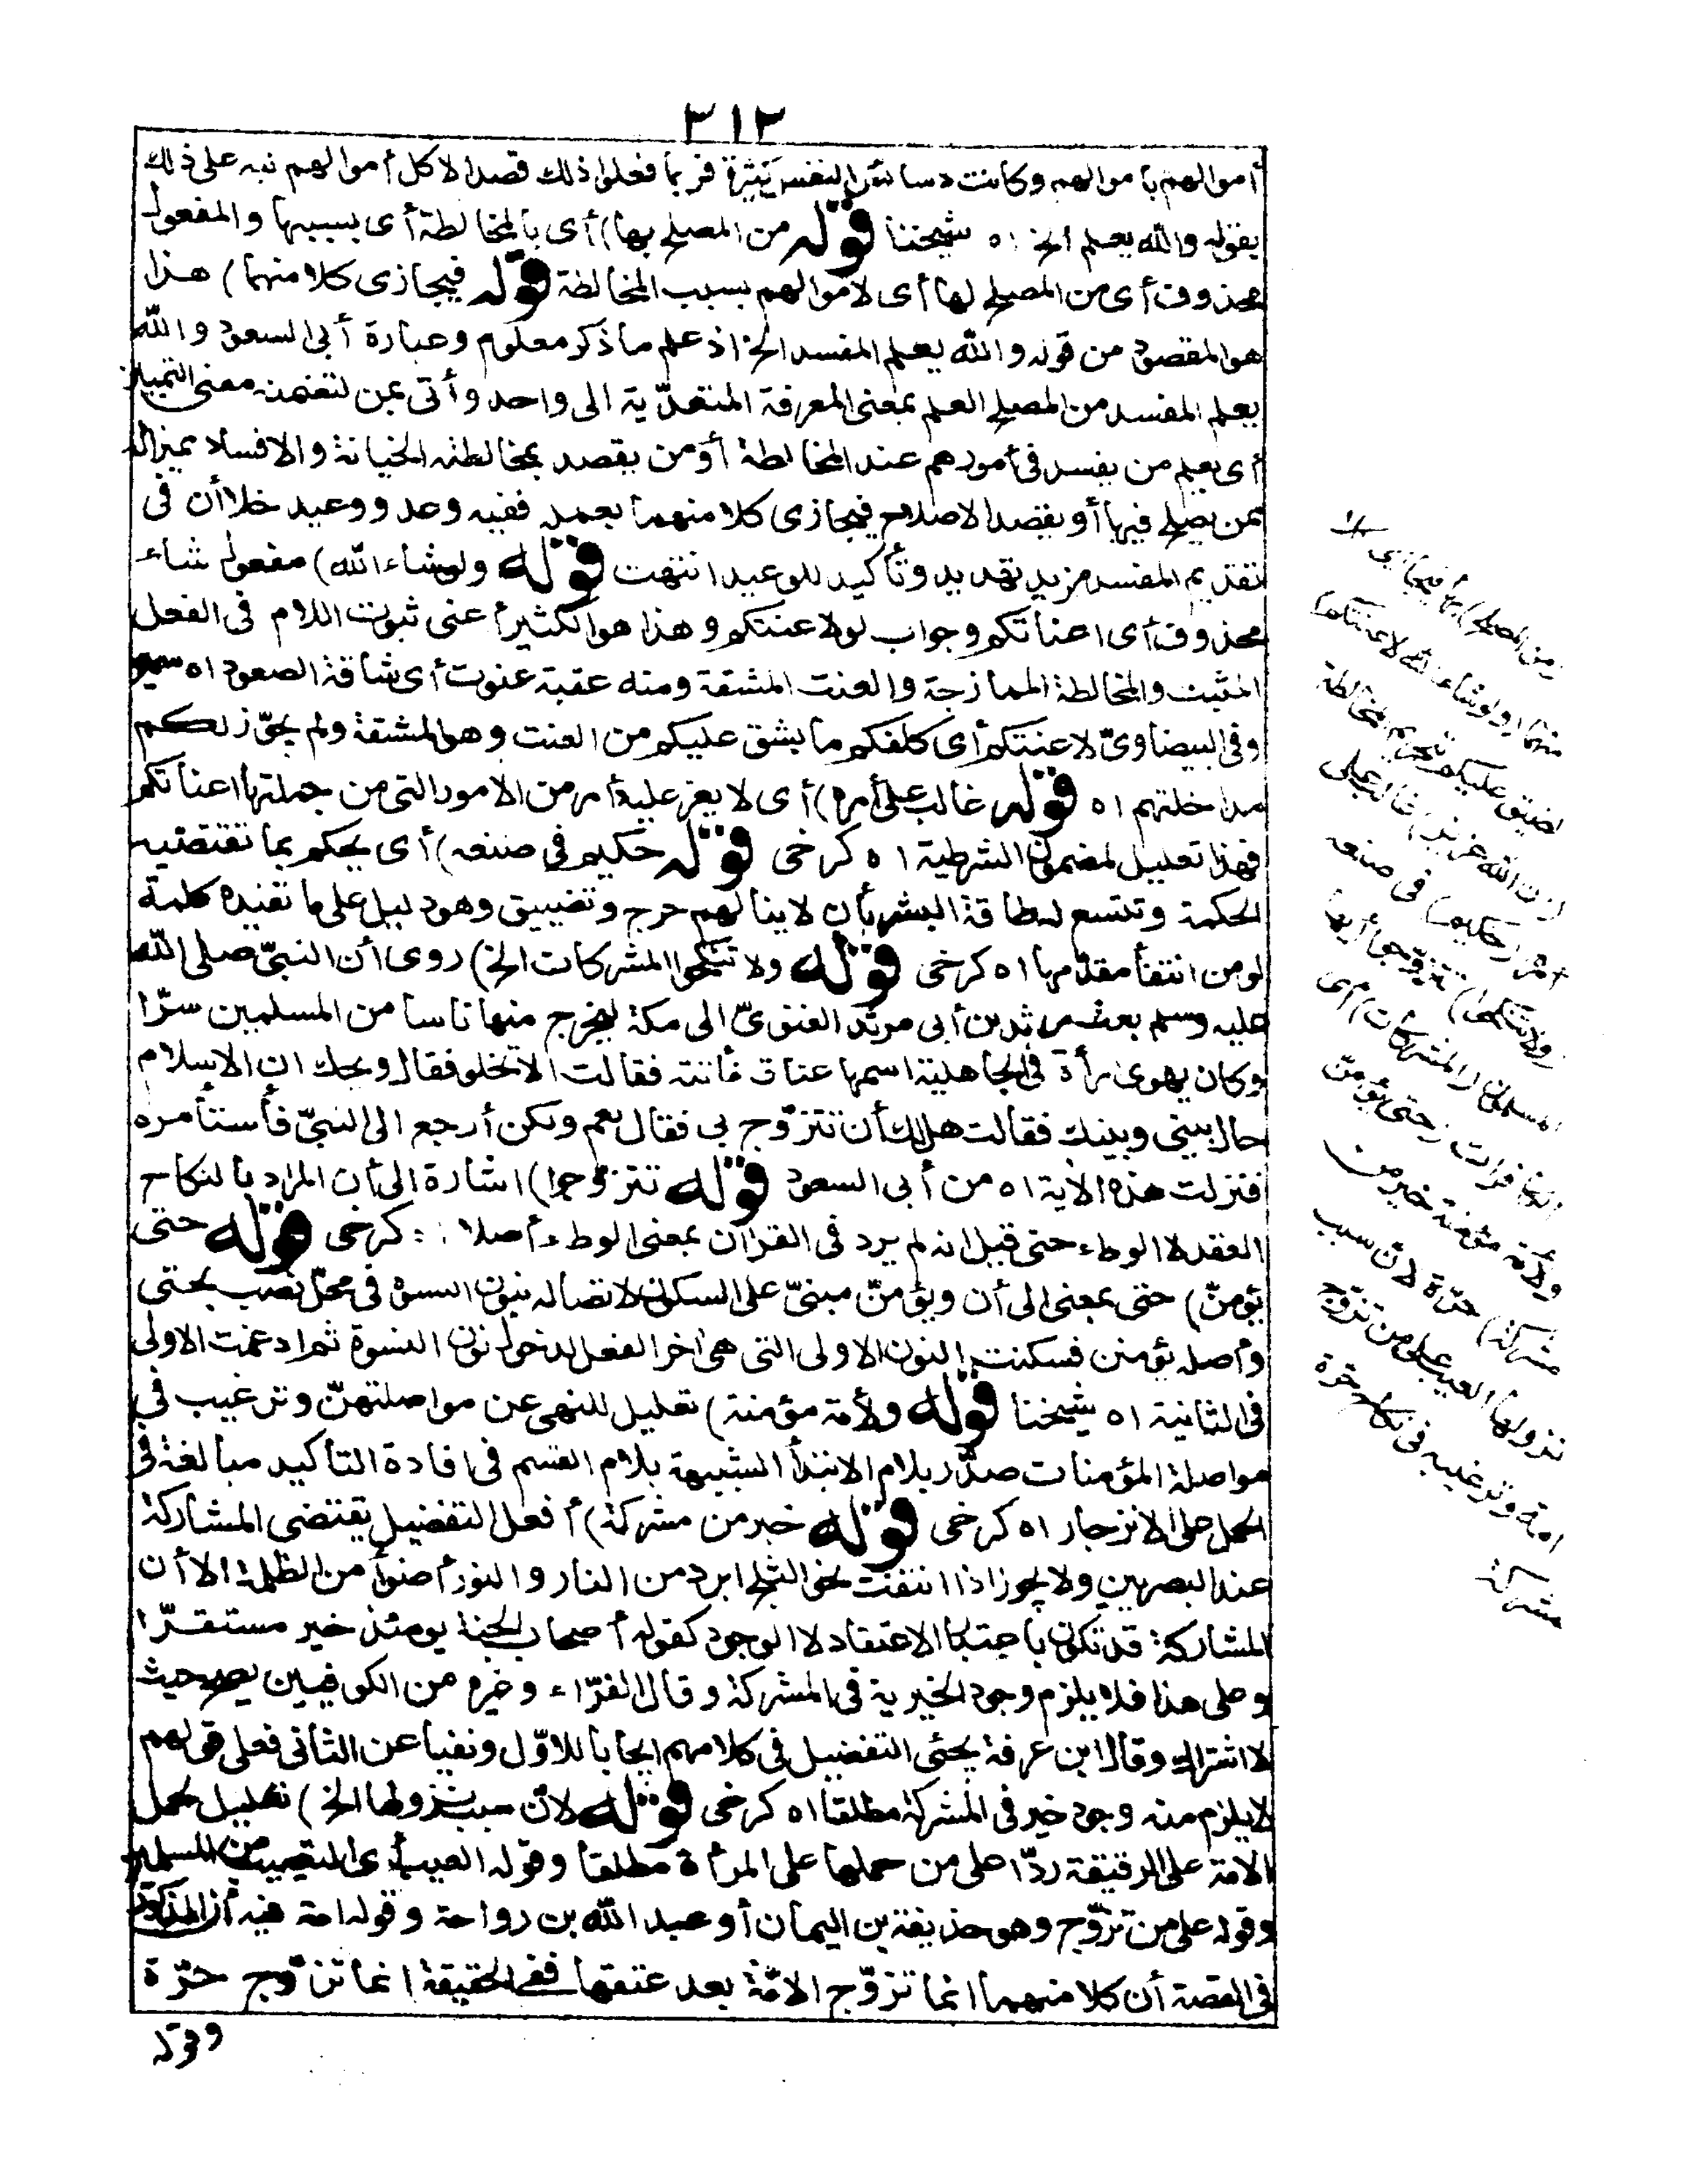 ٣١٢
أموالهم بأموالهم وكانت دسائس النفس كثيرة فربما فعلوا ذلك قصدا لاكل أموالهم نبه على ذلك
بقوله والله يعلم الخ اه شيخنا قوله من المصلح بها) أى بالمخالطة أى بسببها والمفعول
محذوف أى من المصلح لها أى لاموالهم بسبب المخالطة قوله فيجازى كلا منهما) هذا
هو المقصود من قوله والله يعلم المفسد الخ اذ علم ما ذكر معلوم وعبارة أبى السعود والله
يعلم المفسد من المصلح العلم بمعنى المعرفة المتعدّية الى واحد وأتى بمن لتضمنه معنى التمييز
أى يعلم من يفسد فى أمورهم عند المخالطة أو من يقصد بمخالطته الخيانة والافساد مميزا له
ممن يصلح فيها أو يقصد الاصلاح فيجازى كلا منهما بعمله ففيه وعد ووعيد خلا أن فى
تقديم المفسد مزيد تهديد وتأكيد للوعيد انتهت قوله ولو شاء الله) مفعول شاء
محذوف أى اعناتكم وجواب لو لاعنتكم وهذا هو الكثير أعنى ثبوت اللام فى الفعل
المثبت والمخالطة الممازجة والعنت المشقة ومنه عقبة عنوت أى شاقة الصعود اه سمين
وفى البيضاوىّ لاعنتكم أى كلفكم ما يشق عليكم من العنت وهو المشقة ولم يجوّز لكم
مداخلتهم اه قوله غالب على أمره) أى لا يعز عليه أمر من الامور التى من جملتها اعناتكم
فهذا تعليل لمضمون الشرطية اه كرخى قوله حكيم فى صنعه) أى يحكم بما تقتضيه
الحكمة وتتسع له طاقة البشر بأن لا ينالهم حرج وتضييق وهو دليل على ما تفيده كلمة
لو من انتفأ مقدّمها اه كرخى قوله ولا تنكحوا المشركات الخ) روى أن النبىّ صلى الله
عليه وسلم بعث مرثد بن أبى مرثد الغنوىّ الى مكة ليخرج منها ناسا من المسلمين سرّا
وكان يهوى امرأة فى الجاهلية اسمها عناق فأتته فقالت ألا تخلو فقال ويحك ان الاسلام
حال بينى وبينك فقالت هل لك أن تتزوّج بى فقال نعم ولكن أرجع الى النبىّ فأستأمره
فنزلت هذه الآية اه من أبى السعود قوله تتزوّجوا) اشارة الى أن المراد بالنكاح
العقد لا الوطء حتى قيل انه لم يرد فى القرآن بمعنى الوطء أصلا اه كرخى قوله حتى
يؤمنّ) حتى بمعنى الى أن ويؤمنّ مبنىّ على السكون لاتصاله بنون النسوة فى محل نصب بحتى
وأصله يؤمنن فسكنت النون الاولى التى هى آخر الفعل لدخول نون النسوة ثم ادغمت الاولى
فى الثانية اه شيخنا قوله ولأمة مؤمنة) تعليل للنهى عن مواصلتهنّ وترغيب فى
مواصلة المؤمنات صدّر بلام الابتدأ الشبيهة بلام القسم فى افادة التأكيد مبالغة فى
الحمل على الانزجار اه كرخى قوله خير من مشركة) أفعل التفضيل يقتضى المشاركة
عند البصريين ولا يجوز اذا انتفت نحو الثلج ابرد من النار والنور أضوأ من الظلمة الا أن
المشاركة قد تكون باعتبار الاعتقاد لا الوجود كقوله أصحاب الجنة يومئذ خير مستقرّا
وعلى هذا فلا يلزم وجود الخيرية فى المشركة وقال الفرّاء وغيره من الكوفيين يصح حيث
لا اشتراك وقال ابن عرفة يجئى التفضيل فى كلامهم ايجابا للاوّل ونفيا عن الثانى فعلى قولهم
لا يلزم منه وجود خير فى المشركة مطلقا اه كرخى قوله لانّ سبب نزولها الخ) تعليل لحمل
الامة على الرقيقة ردّا على من حملها على المرأة مطلقا وقوله العيب أى التعييب من المسلمين
وقوله على من تزوّج وهو حذيفة بن اليمان أو عبد الله بن رواحة وقوله امة فيه أن المذكور
فى القصة أن كلا منهما انما تزوّج الامّة بعد عتقها ففى الحقيقة انما تزوّج حرّة
وقوله
(من المصلح) بها فيجازى كلا
منهما (ولو شاء الله لاعنتكم)
لضيق عليكم بتحريم المخالطة
(ان الله عزيز) غالب على
أمره (حكيم) فى صنعه
(ولا تنكحوا) تتزوّجوا أيها
المسلمون (المشركات) أى
الكافرات (حتى يؤمنّ
ولأمة مؤمنة خير من
مشركة) حرّة لانّ سبب
نزولها العيب على من تزوّج
امة وترغيبه فى نكاح حرّة
مشركة